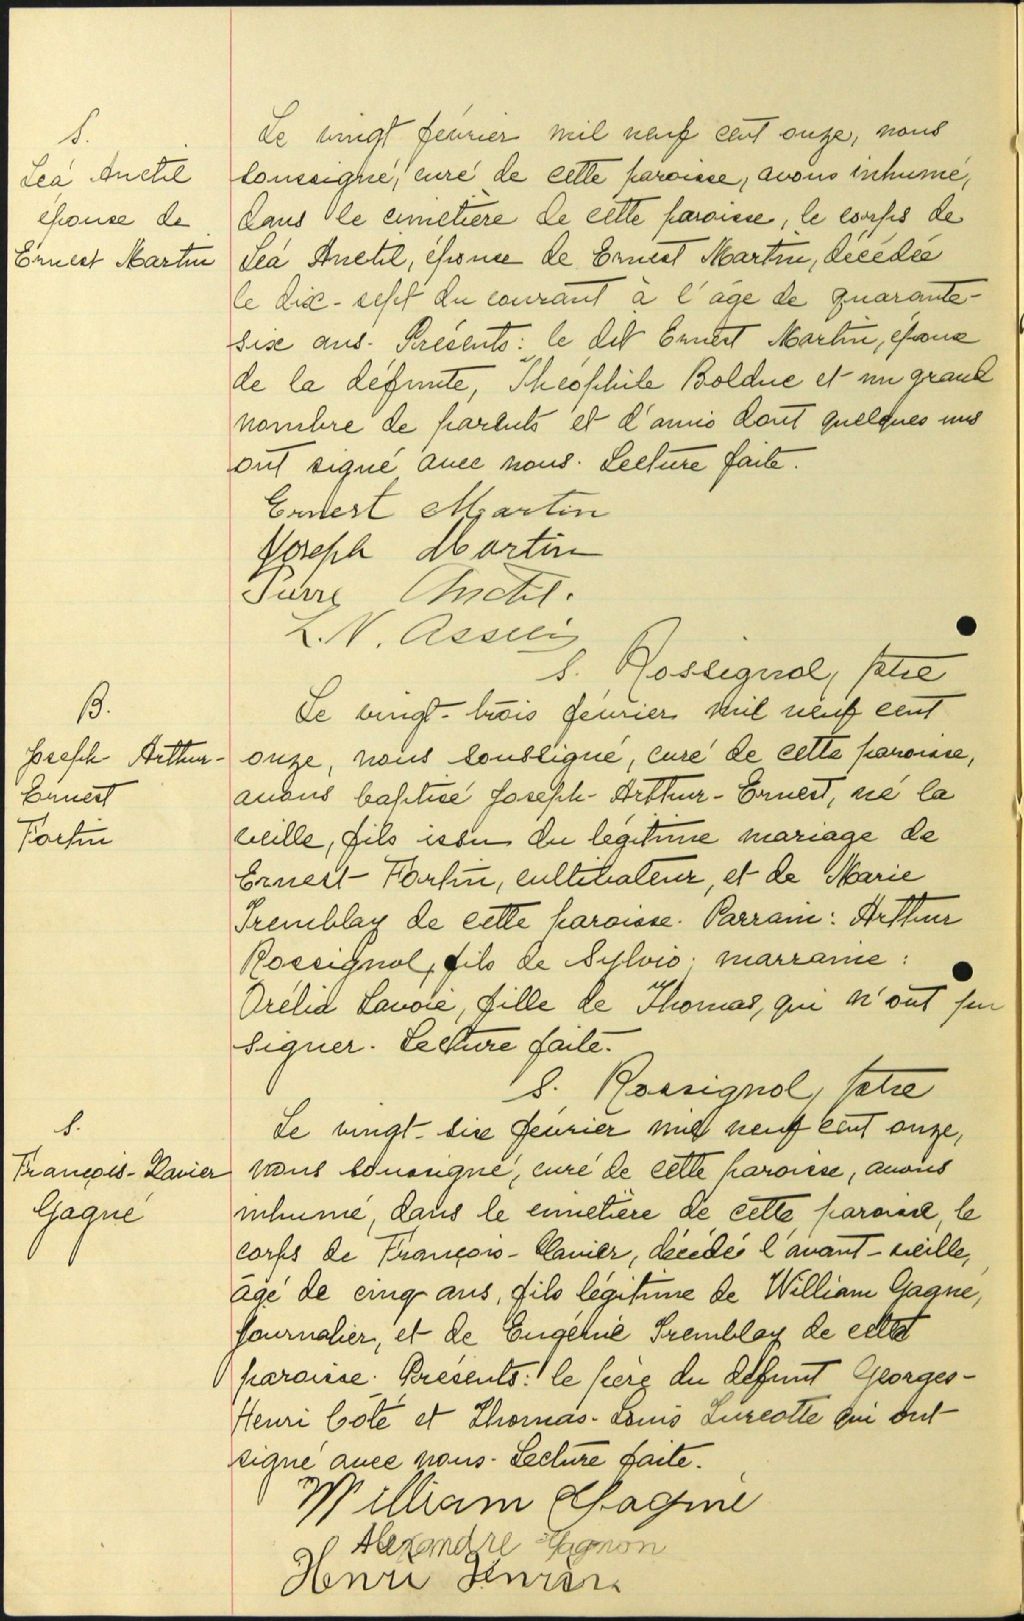 S.
Léa Anctil
épouse de
Ernest Martin
Le vingt février mil neuf cent onze, nous
soussigné, curé de cette paroisse, avons inhumé,
dans le cimetière de cette paroisse, le corps de
Léa Anctil, épouse de Ernest Martin, décédée
le dix-sept du courant à l'âge de quarante-
six ans. Présents: le dit Ernest Martin, époux
de la défunte, Théophile Bolduc et un grand
nombre de parents et d'amis dont quelques uns
ont signé avec nous. Lecture faite.
Ernest Martin
Joseph Martin
Pierre Anctil.
L. N. Asselin
S. Rossignol, ptre
B.
Joseph-Arthur-
Ernest
Fortin
Le vingt-trois février mil neuf cent
onze, nous soussigné, curé de cette paroisse,
avons baptisé Joseph-Arthur-Ernest, né la
veille, fils issu du légitime mariage de
Ernest Fortin, cultivateur, et de Marie
Tremblay de cette paroisse. Parrain: Arthur
Rossignol, fils de Sylvio; marraine:
Orélia Lavoie, fille de Thomas, qui n'ont pu
signer. Lecture faite.
S. Rossignol, ptre
S.
François-Xavier
Gagné
Le vingt-six février mil neuf cent onze,
nous soussigné, curé de cette paroisse, avons
inhumé, dans le cimetière de cette paroisse, le
corps de François-Xavier, décédé l'avant-veille,
âgé de cinq ans, fils légitime de William Gagné,
journalier, et de Eugénie Tremblay de cette
paroisse. Présents: le père du défunt Georges-
Henri Côté et Thomas-Louis Turcotte qui ont
signé avec nous. Lecture faite.
William Gagné
Alexandre Gagnon
Henri